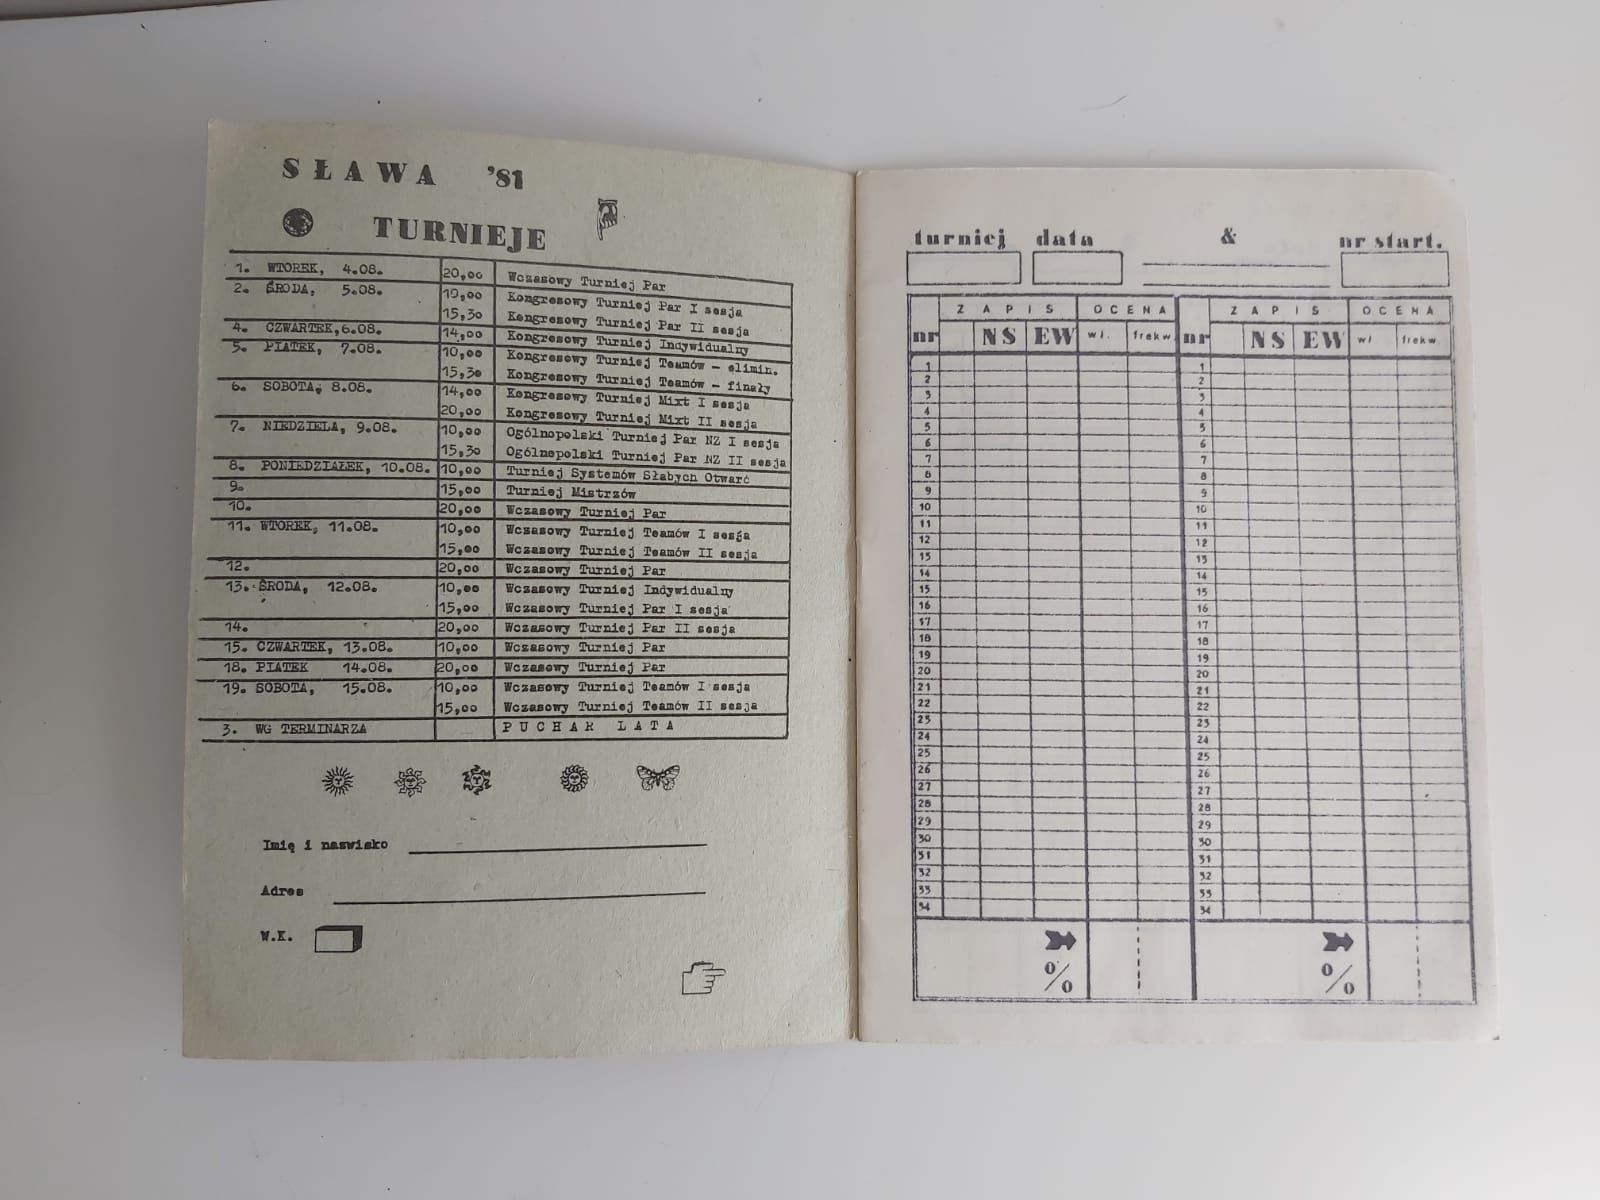 SŁAWA '81
TURNIEJE
1. WTOREK, 4.08. 20,00 Wczasowy Turniej Par
2. ŚRODA, 5.08. 10,00 Kongresowy Turniej Par I sesja
15,30 Kongresowy Turniej Par II sesja
4. CZWARTEK,6.08. 14,00 Kongresowy Turniej Indywidualny
5. PIĄTEK, 7.08. 10,00 Kongresowy Turniej Teamów - elimin.
15,30 Kongresowy Turniej Teamów - finały
6. SOBOTA, 8.08. 14,00 Kongresowy Turniej Mixt I sesja
20,00 Kongresowy Turniej Mixt II sesja
7. NIEDZIELA, 9.08. 10,00 Ogólnopolski Turniej Par NZ I sesja
15,30 Ogólnopolski Turniej Par NZ II sesja
8. PONIEDZIAŁEK, 10.08. 10,00 Turniej Systemów Słabych Otwarć
9. 15,00 Turniej Mistrzów
10. 20,00 Wczasowy Turniej Par
11. WTOREK, 11.08. 10,00 Wczasowy Turniej Teamów I sesja
15,00 Wczasowy Turniej Teamów II sesja
12. 20,00 Wczasowy Turniej Par
13. ŚRODA, 12.08. 10,00 Wczasowy Turniej Indywidualny
15,00 Wczasowy Turniej Par I sesja
14. 20,00 Wczasowy Turniej Par II sesja
15. CZWARTEK, 13.08. 10,00 Wczasowy Turniej Par
18. PIĄTEK 14.08. 20,00 Wczasowy Turniej Par
19. SOBOTA, 15.08. 10,00 Wczasowy Turniej Teamów I sesja
15,00 Wczasowy Turniej Teamów II sesja
3. WG TERMINARZA PUCHAR LATA
Imię i nazwisko
Adres
W.K.
turniej data & nr start.
ZAPIS OCENA ZAPIS OCENA
nr NS EW wł. frekw. nr NS EW wł frekw.
1 1
2 2
3 3
4 4
5 5
6 6
7 7
8 8
9 9
10 10
11 11
12 12
13 13
14 14
15 15
16 16
17 17
18 18
19 19
20 20
21 21
22 22
23 23
24 24
25 25
26 26
27 27
28 28
29 29
30 30
31 31
32 32
33 33
34 34
% %